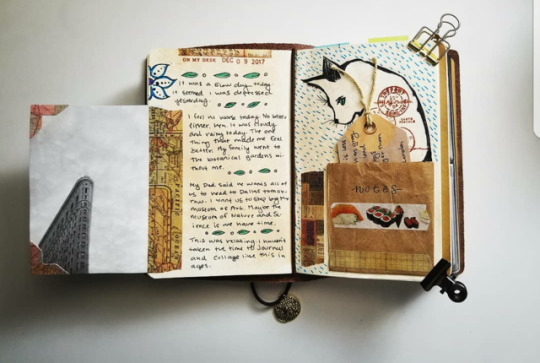 ON MY DESK DEC 09 2017
It was a slow day today
it seemed I was depressed
yesterday.
I feel no worse today. No
It was cloudy
and rainy today. The one
thing that made me feel
better. My family went to
the botanical gardens wi-
thout me.
My Dad said he wants all of
us to head to Dallas tomor-
row. I want us to stop by the
Museum of Art. Maybe the
Museum of Nature and Sc-
ience is we have time.
This was relaxing I haven't
taken the time to journal
and collage like this in
ages.
notes